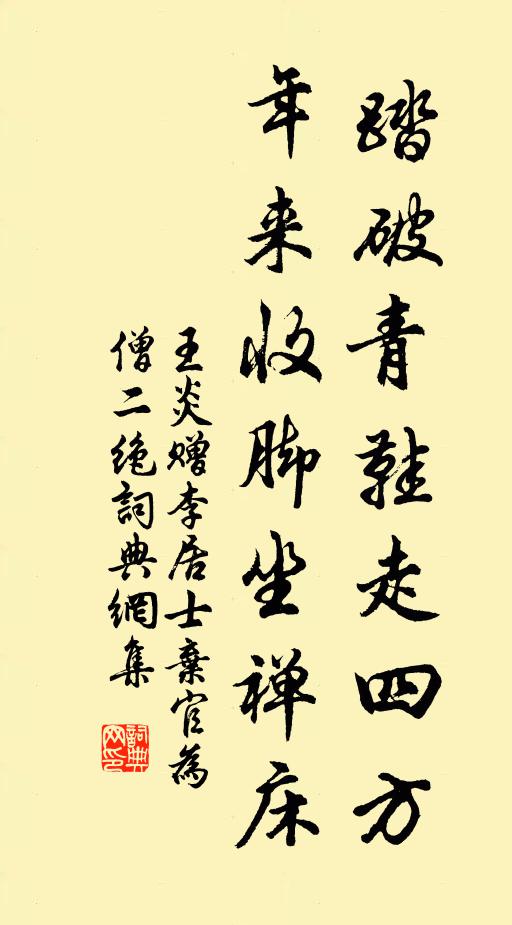 踏破青鞋走四方
年来收脚坐禅床
王炎赠李居士棄官為
僧二绝詞典網集
詞典网印